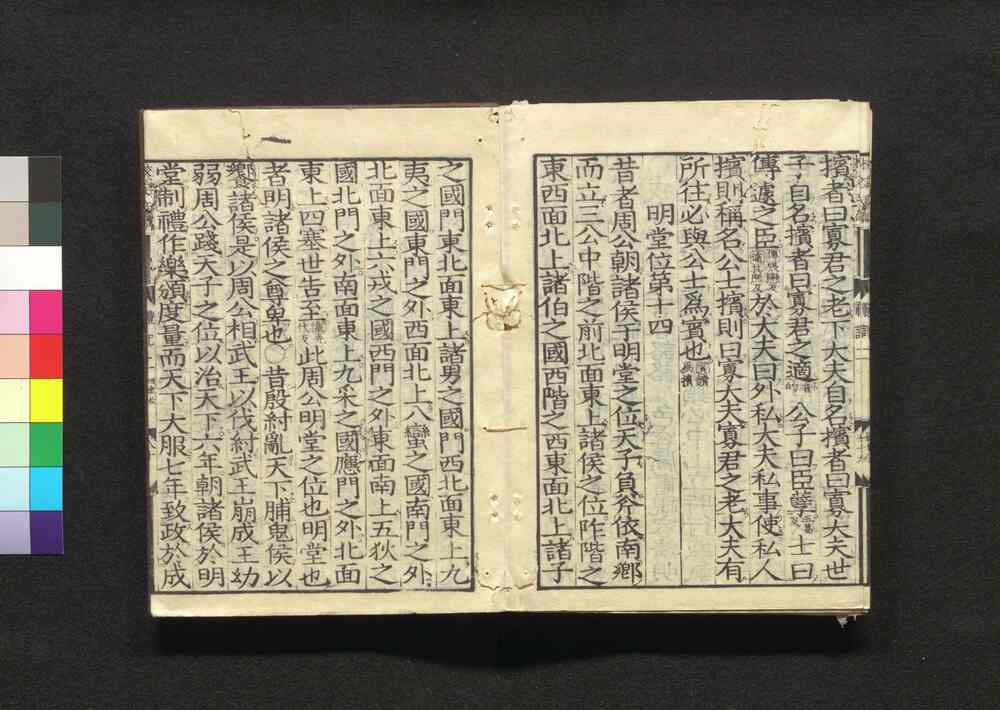 擯者曰寡君之老下大夫自名擯者曰寡大夫世
子自名擯者曰寡君之適公子曰臣孽士曰
傳遽之臣於大夫曰外私大夫私事使私人
擯則稱名公士擯則曰寡大夫寡君之老大夫有
所往必與公士為賓也
明堂位第十四
昔者周公朝諸侯于明堂之位天子負斧依南鄉
而立三公中階之前北面東上諸侯之位阼階之
東西面北上諸伯之國西階之西東面北上諸子
之國門東北面東上諸男之國門西北面東上九
夷之國東門之外西面北上八蠻之國南門之外
北面東上六戎之國西門之外東面南上五狄之
國北門之外南面東上九采之國應門之外北面
東上四塞世告至此周公明堂之位也明堂也
者明諸侯之尊卑也○昔殷紂亂天下脯鬼侯以
饗諸侯是以周公相武王以伐紂武王崩成王幼
弱周公踐天子之位以治天下六年朝諸侯於明
堂制禮作樂頒度量而天下大服七年致政於成